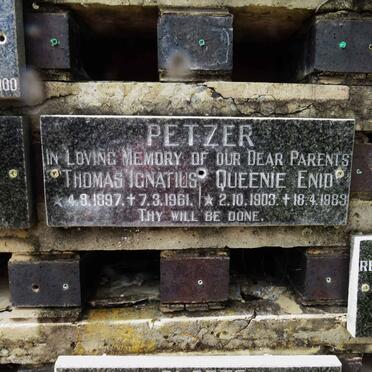 PETZER
IN LOVING MEMORY OF OUR DEAR PARENTS
THOMAS IGNATIUS QUEENIE ENID
★4.8.1897.+7.3.1961. ★2.10.1903.+18.4.1983
THY WILL BE DONE.